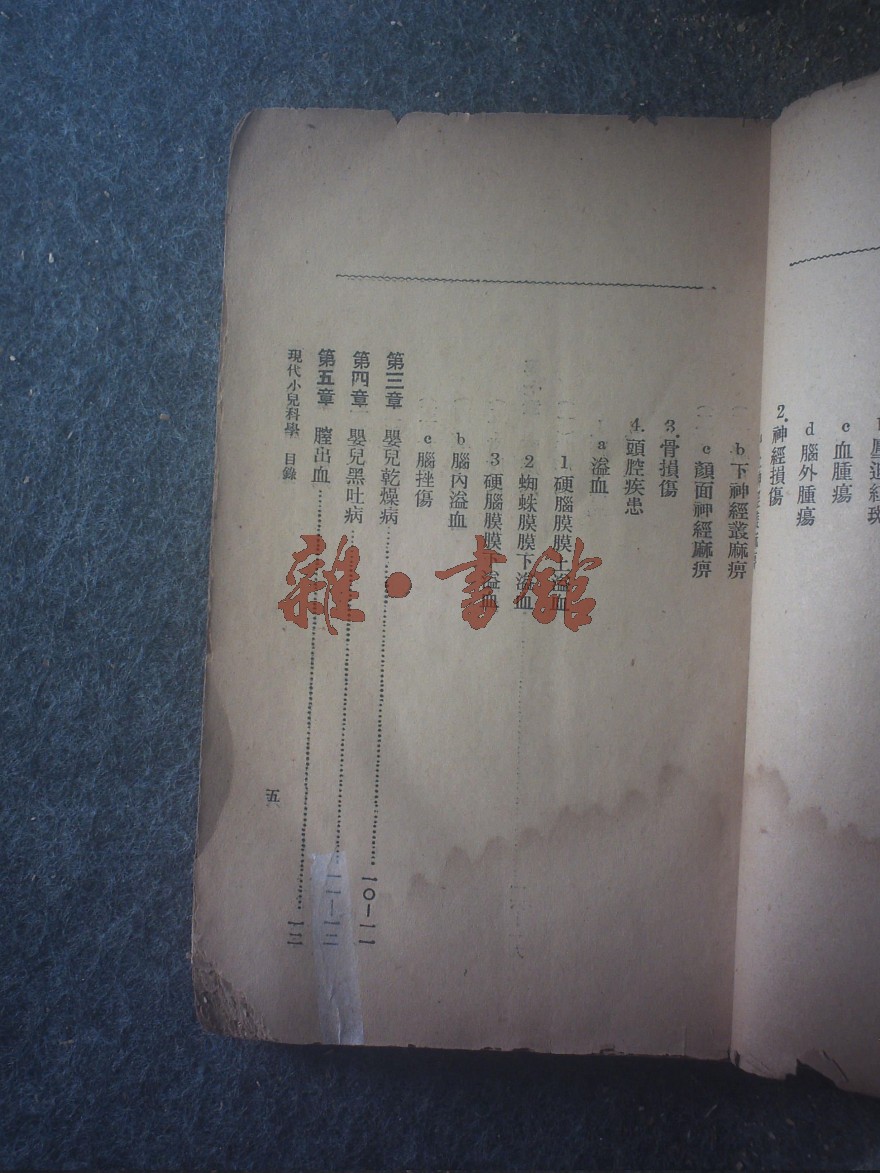 c血腫瘍
d腦外腫瘍
2.神經損傷
b下神經叢麻痹
c顏面神經麻痹
3.骨損傷
4.頭腔疾患
a溢血
1硬腦膜膜上溢血
2蜘蛛膜膜下溢血
3硬腦膜膜下溢血
b腦內溢血
c腦挫傷
第三章 嬰兒乾燥病 一〇—一一
第四章 嬰兒黑吐病 一一—一二
第五章 膣出血 一二
現代小兒科學 目錄
五
雜·書館